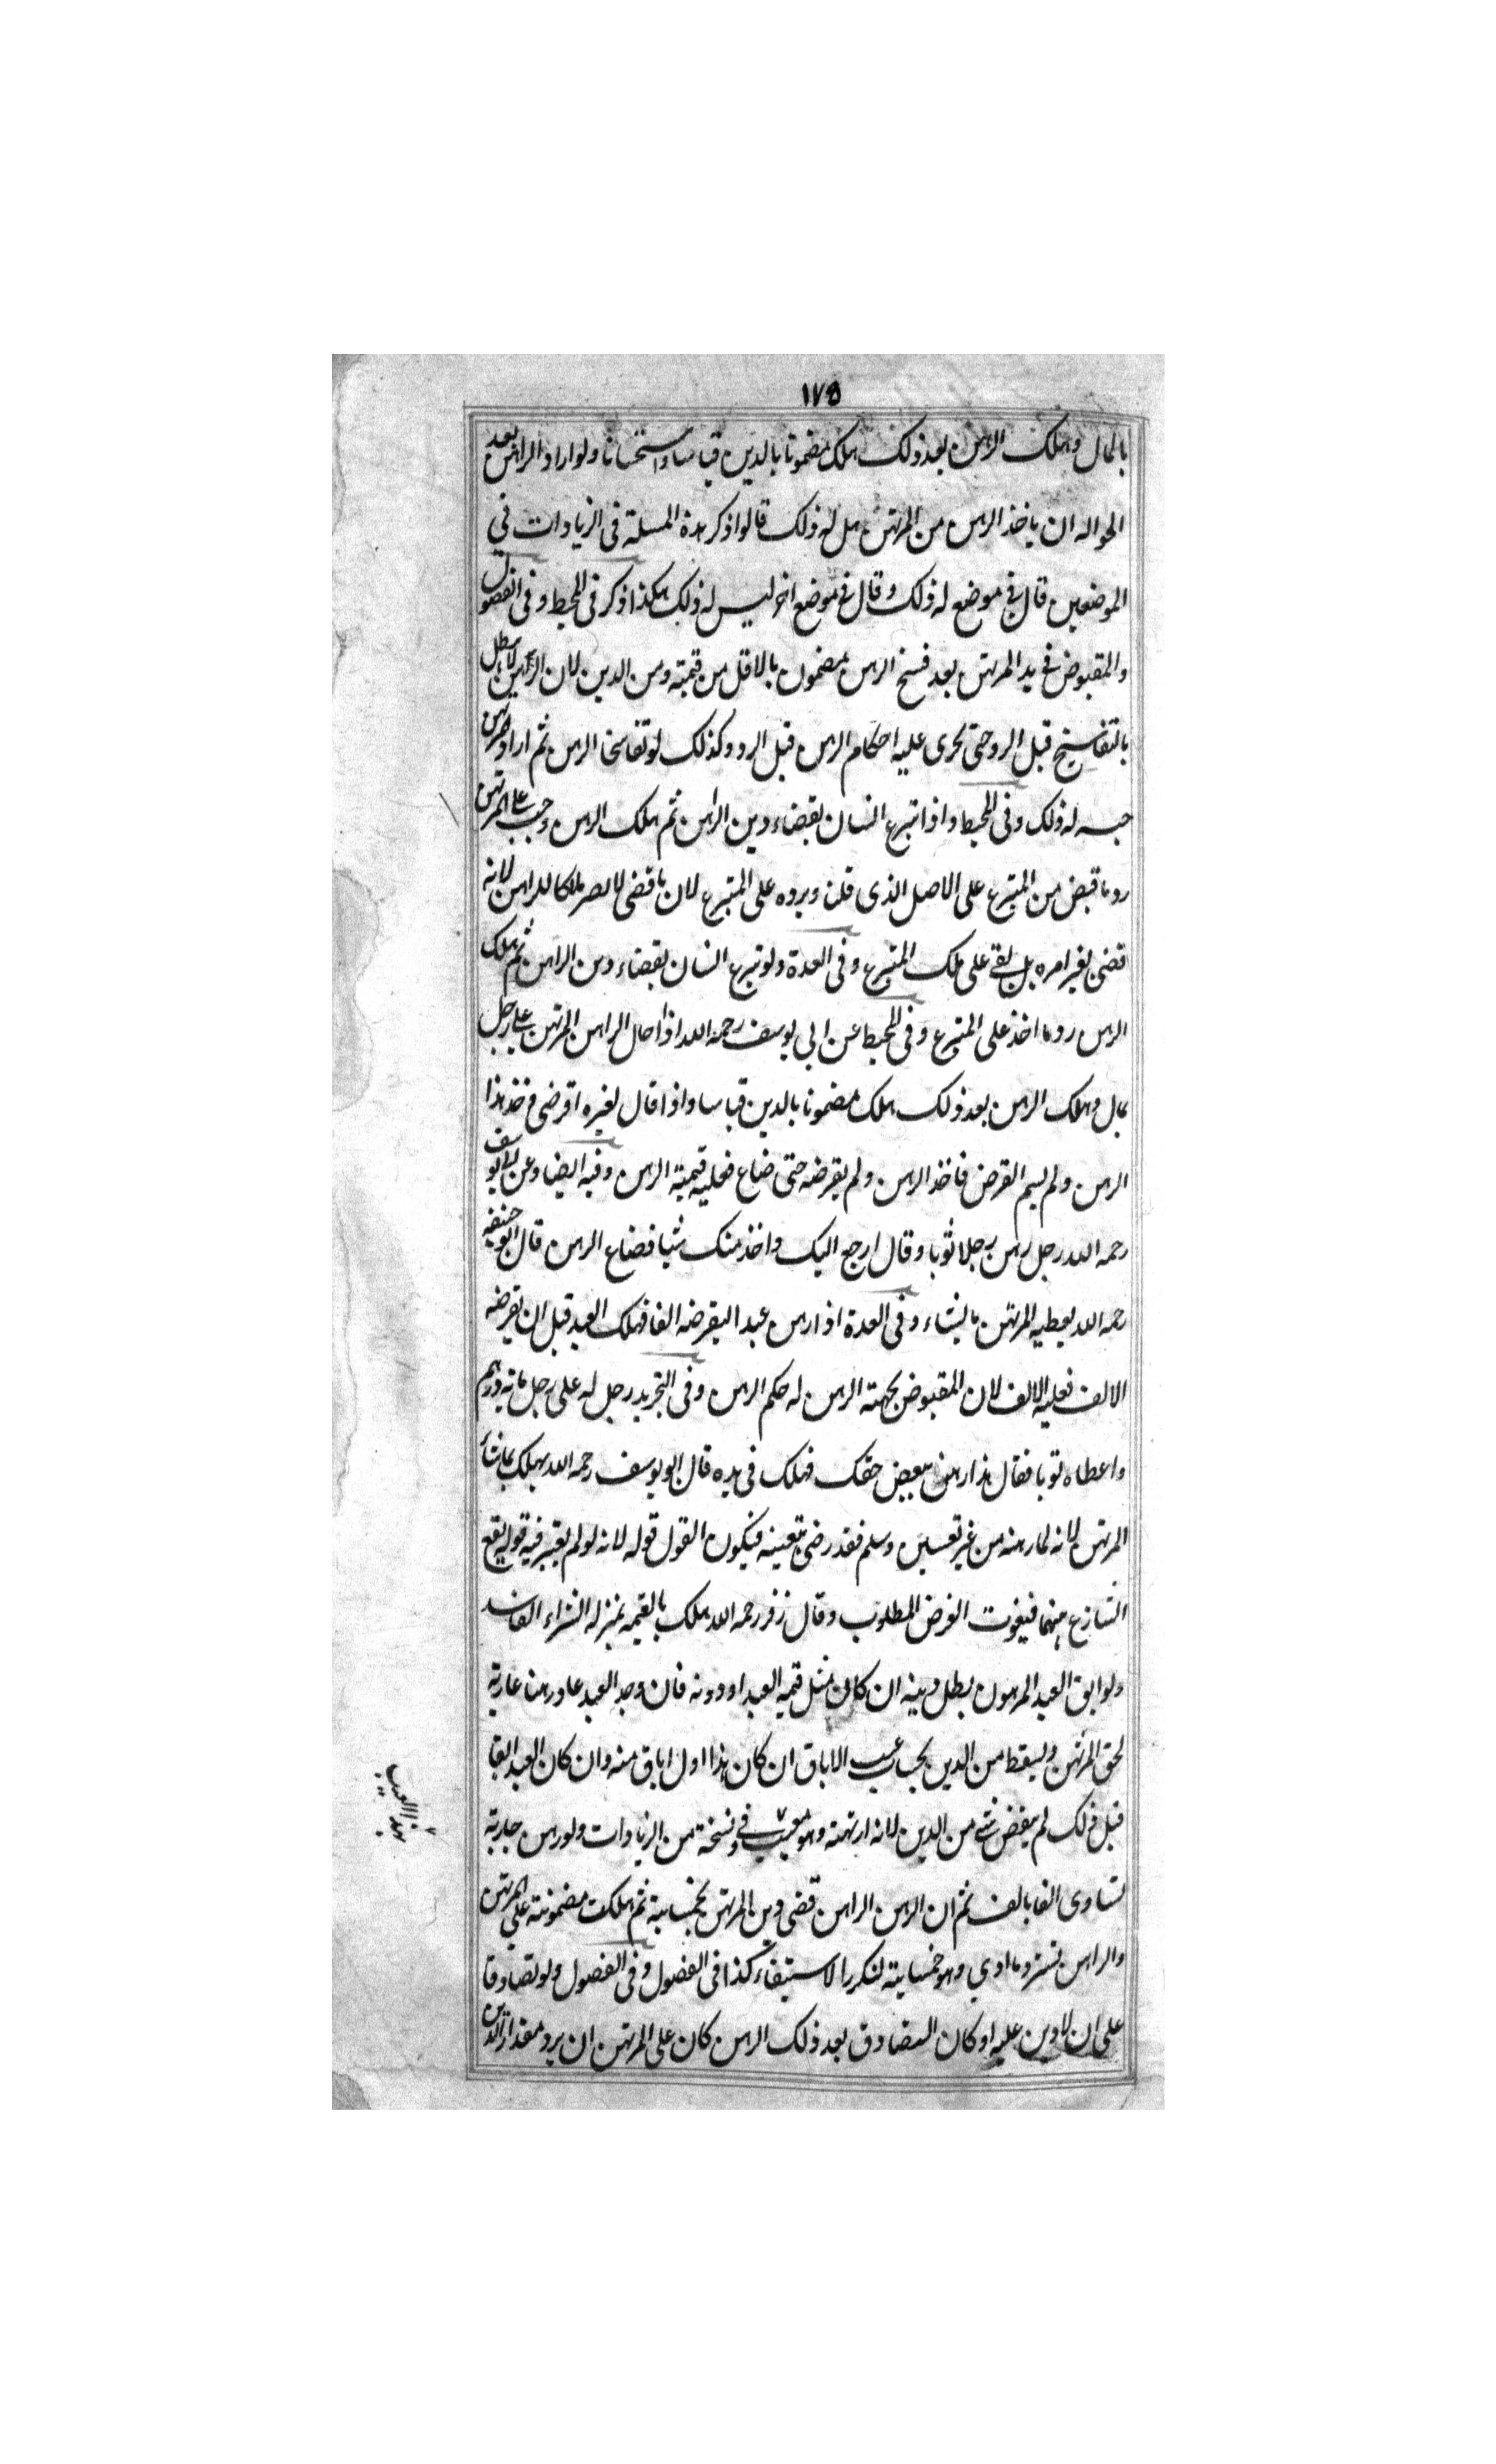 ١٧٥
بالمال وهلك الرهن بعد ذلك هلك مضمونا بالدين قياسا واستحسانا ولو اراد الراهن بعد
الحواله ان ياخذ الرهن من المرتهن هل له ذلك قالوا ذكر هذة المسلة فى الزيادات في
الموضعين قال في موضع له ذلك وقال في موضع اخر ليس له ذلك هكذا ذكر فى المحيط وفى الفصول
والمقبوض في يد المرتهن بعد فسخ الرهن مضمون بالاقل من قيمته ومن الدين لان الرهن لا يبطل
بالتفاسخ قبل الرد حتى يجرى عليه احكام الرهن قبل الرد وكذلك لو تفاسخا الرهن ثم اراد المرتهن
حبسه له ذلك وفى المحيط واذا تبرع انسان بقضاء دين الراهن ثم هلك الرهن وجب على المرتهن
رد ما قبض من المتبرع على الاصل الذى قلنا ويرده على المتبرع لان ما قضى لا يصر ملكا للراهن لانه
قضى بغير امره بل بقى على ملك المتبرع وفى العدة ولو تبرع انسان بقضاء دين الراهن ثم هلك
الرهن رد ما اخذ على المتبرع وفى المحيط عن ابي يوسف رحمة الله اذا احال الراهن المرتهن على رجل
بمال وهلك الرهن بعد ذلك هلك مضمونا بالدين قياسا واذا قال لغيره اقرضى وخذ هذا
الرهن ولم يسم القرض فاخذ الرهن ولم يقرضه حتى ضاع فعليه قيمة الرهن وفيه ايضا وعن ابي يوسف
رحمه الله رجل رهن رجلا ثوبا وقال ارجع اليك واخذ منك شيا فضاع الرهن قال ابو حنيفه
رحمه الله يعطيه المرتهن ما يشاء وفى العدة اذا رهن عبدا ليقرضه الفا فهلك العبد قبل ان يقرضه
الالف فعليه الالف لان المقبوض بجهته الرهن له حكم الرهن وفى التجريد رجل له على رجل ماية درهم
واعطاه ثوبا فقال هذا رهن ببعض حقك فهلك فى يده قال ابو يوسف رحمه الله يهلك بما شاء
المرتهن لانه لما رهنه من غير تعيين وسلم فقد رضى بتعينه فيكون القول قوله لانه لو لم يعتبر فيه قوله يقع
التنازع بينهما فيفوت الغرض المطلوب وقال زفر رحمه الله هلك بالقيمه بمنزله الشراء الفاسد
ولو ابق العبد المرهون بطل دينه ان كان مثل قيمه العبد او دونه فان وجد العبد عاد رهنا عادية
لحق المرتهن ويسقط من الدين بحساب عيب الاباق ان كان هذا اول اباق منه وان كان العبد ابقا
قبل ذلك لم ينقض شي من الدين لانه ارتهنه وهو معيب في ونسخة من الزيادات ولو رهن جارية
بهذا العيب
تساوى الفا بالف ثم ان الرهن الراهن قضى دين المرتهن بخمسمايه ثم هلكت مضمونته على المرتهن
والراهن يسترد ما ادي وهو خمسمايه لتكرر الاستيفاء كذا فى الفصول وفى الفصول ولو تصادقا
على ان لا دين عليه او كان التصادق بعد ذلك الرهن كان على المرتهن ان يرد مقدار الدين